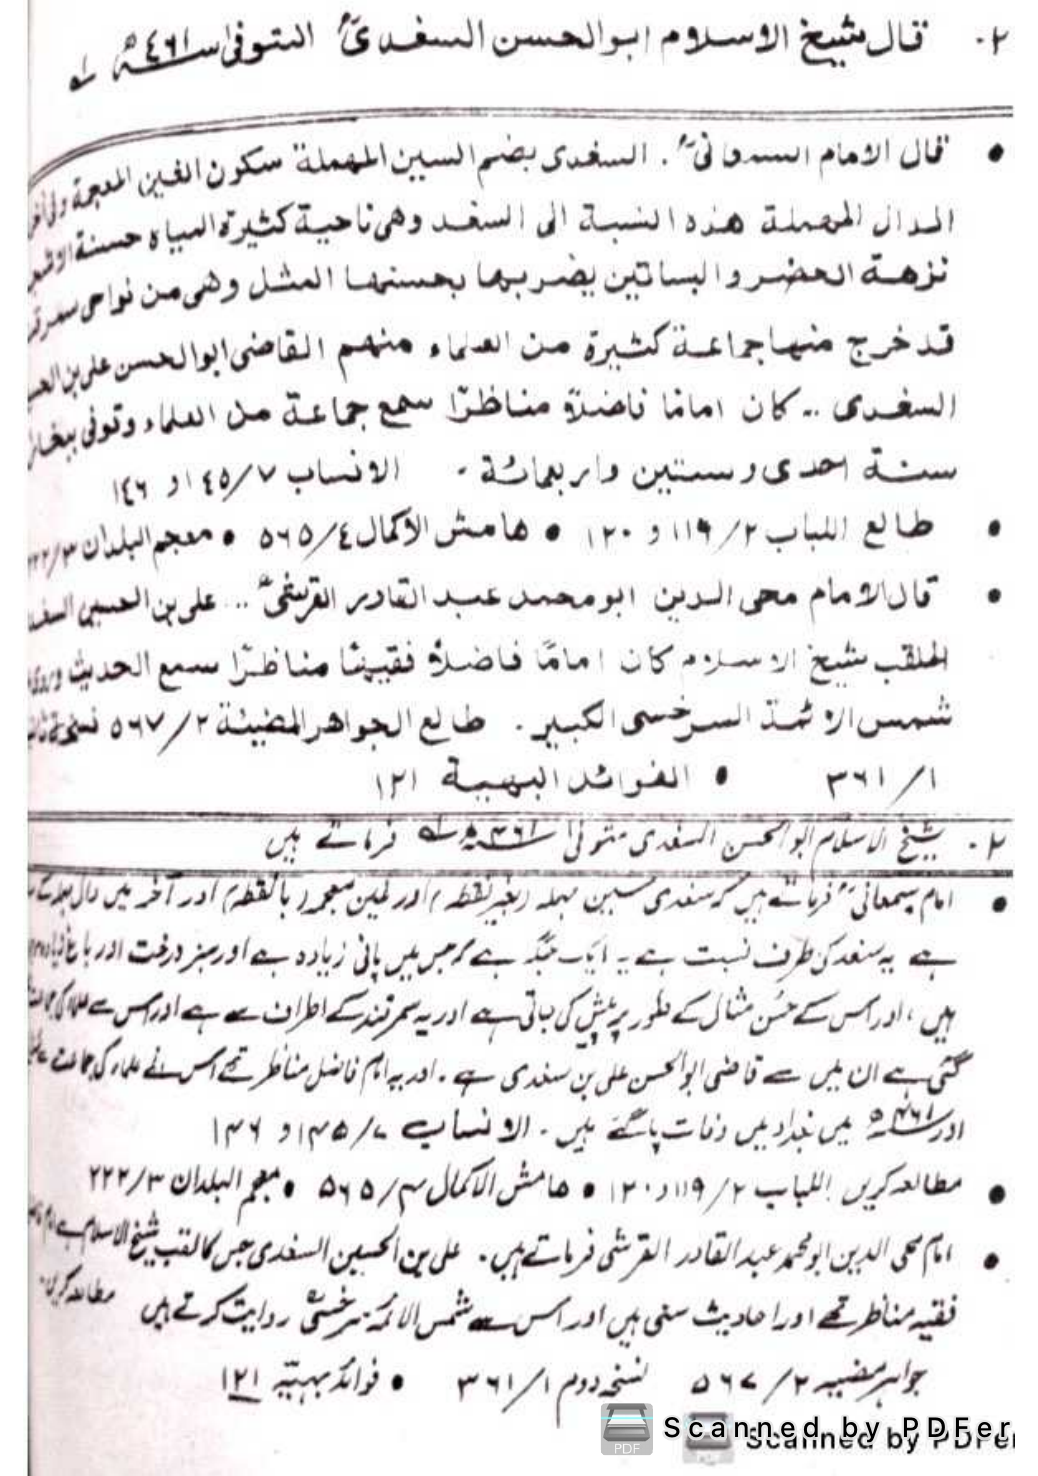 ٢. قال شيخ الاسلام ابوالحسن السغدیؒ المتوفیٰ سنة ٤٦١ھ
• قال الامام السمعانیؒ. السغدی بضم السين المهملة سكون الغين المعجمة وفی
الدال المهملة هذه النسبة الى السغد وهی ناحية كثيرة المياه حسنة
نزهة الحضر والبساتين يضرب بها بحسنها المثل وهی من نواحی
قد خرج منها جماعة كثيرة من العلماء منهم القاضی ابوالحسن علی بن
السغدی .. كان امامًا فاضلاً مناظرًا سمع جماعة من العلماء وتوفی
سنة احدی وستين واربعمائة. الانساب ٧/١٤٥ و ١٤٦
• طالع اللباب ٢/١١٩ و ١٢٠ • هامش الاكمال ٤/٥٦٥ • معجم البلدان
• قال الامام محی الدين ابومحمد عبد القادر القرشیؒ .. علی بن الحسين
الملقب شيخ الاسلام كان امامًا فاضلاً فقيهًا مناظرًا سمع الحديث
شمس الائمة السرخسی الكبير. طالع الجواهر المضيئة ٢/٥٦٧ نسخة
١/٣٦١ • الفوائد البهية ١٢١
٢. شیخ الاسلام ابوالحسن السغدی متوفیٰ فرماتے ہیں
• امام سمعانیؒ فرماتے ہیں کہ سغدی سین مہملہ (بغیر نقطہ) اور غین معجمہ (بالنقطہ) اور آخر میں دال
ہے یہ سغد کی طرف نسبت ہے۔ ایک جگہ ہے کہ جس میں پانی زیادہ ہے اور سبز درخت اور باغ
ہیں، اور اس کے حسن مثال کے طور پر پیش کی جاتی ہے اور یہ سمرقند کے اطراف سے ہے اور اس سے
گئی ہے ان میں سے قاضی ابوالحسن علی بن سغدی ہے۔ اور یہ امام فاضل مناظر تھے اس نے علماء کی جماعت
اور ٤٦١ھ میں بغداد میں وفات پا گئے ہیں۔ الانساب ٧/١٤٥ و ١٤٦
• مطالعہ کریں اللباب ٢/١١٩ و ١٢٠ • ھامش الاکمال ٤/٥٦٥ • معجم البلدان ٣/٢٢٢
• امام محی الدین ابومحمد عبد القادر القرشی فرماتے ہیں۔ علی بن الحسین السغدی جس کا لقب شیخ الاسلام ہے
فقیہ مناظر تھے اور احادیث سنی ہیں اور اس سے شمس الائمہ سرخسیؒ روایت کرتے ہیں مطالعہ کریں
جواہر مضیہ ٢/٥٦٧ نسخہ دوم ١/٣٦١ • فوائد بہیۃ ١٢١
Scanned by PDFer
Scanned by PDFer